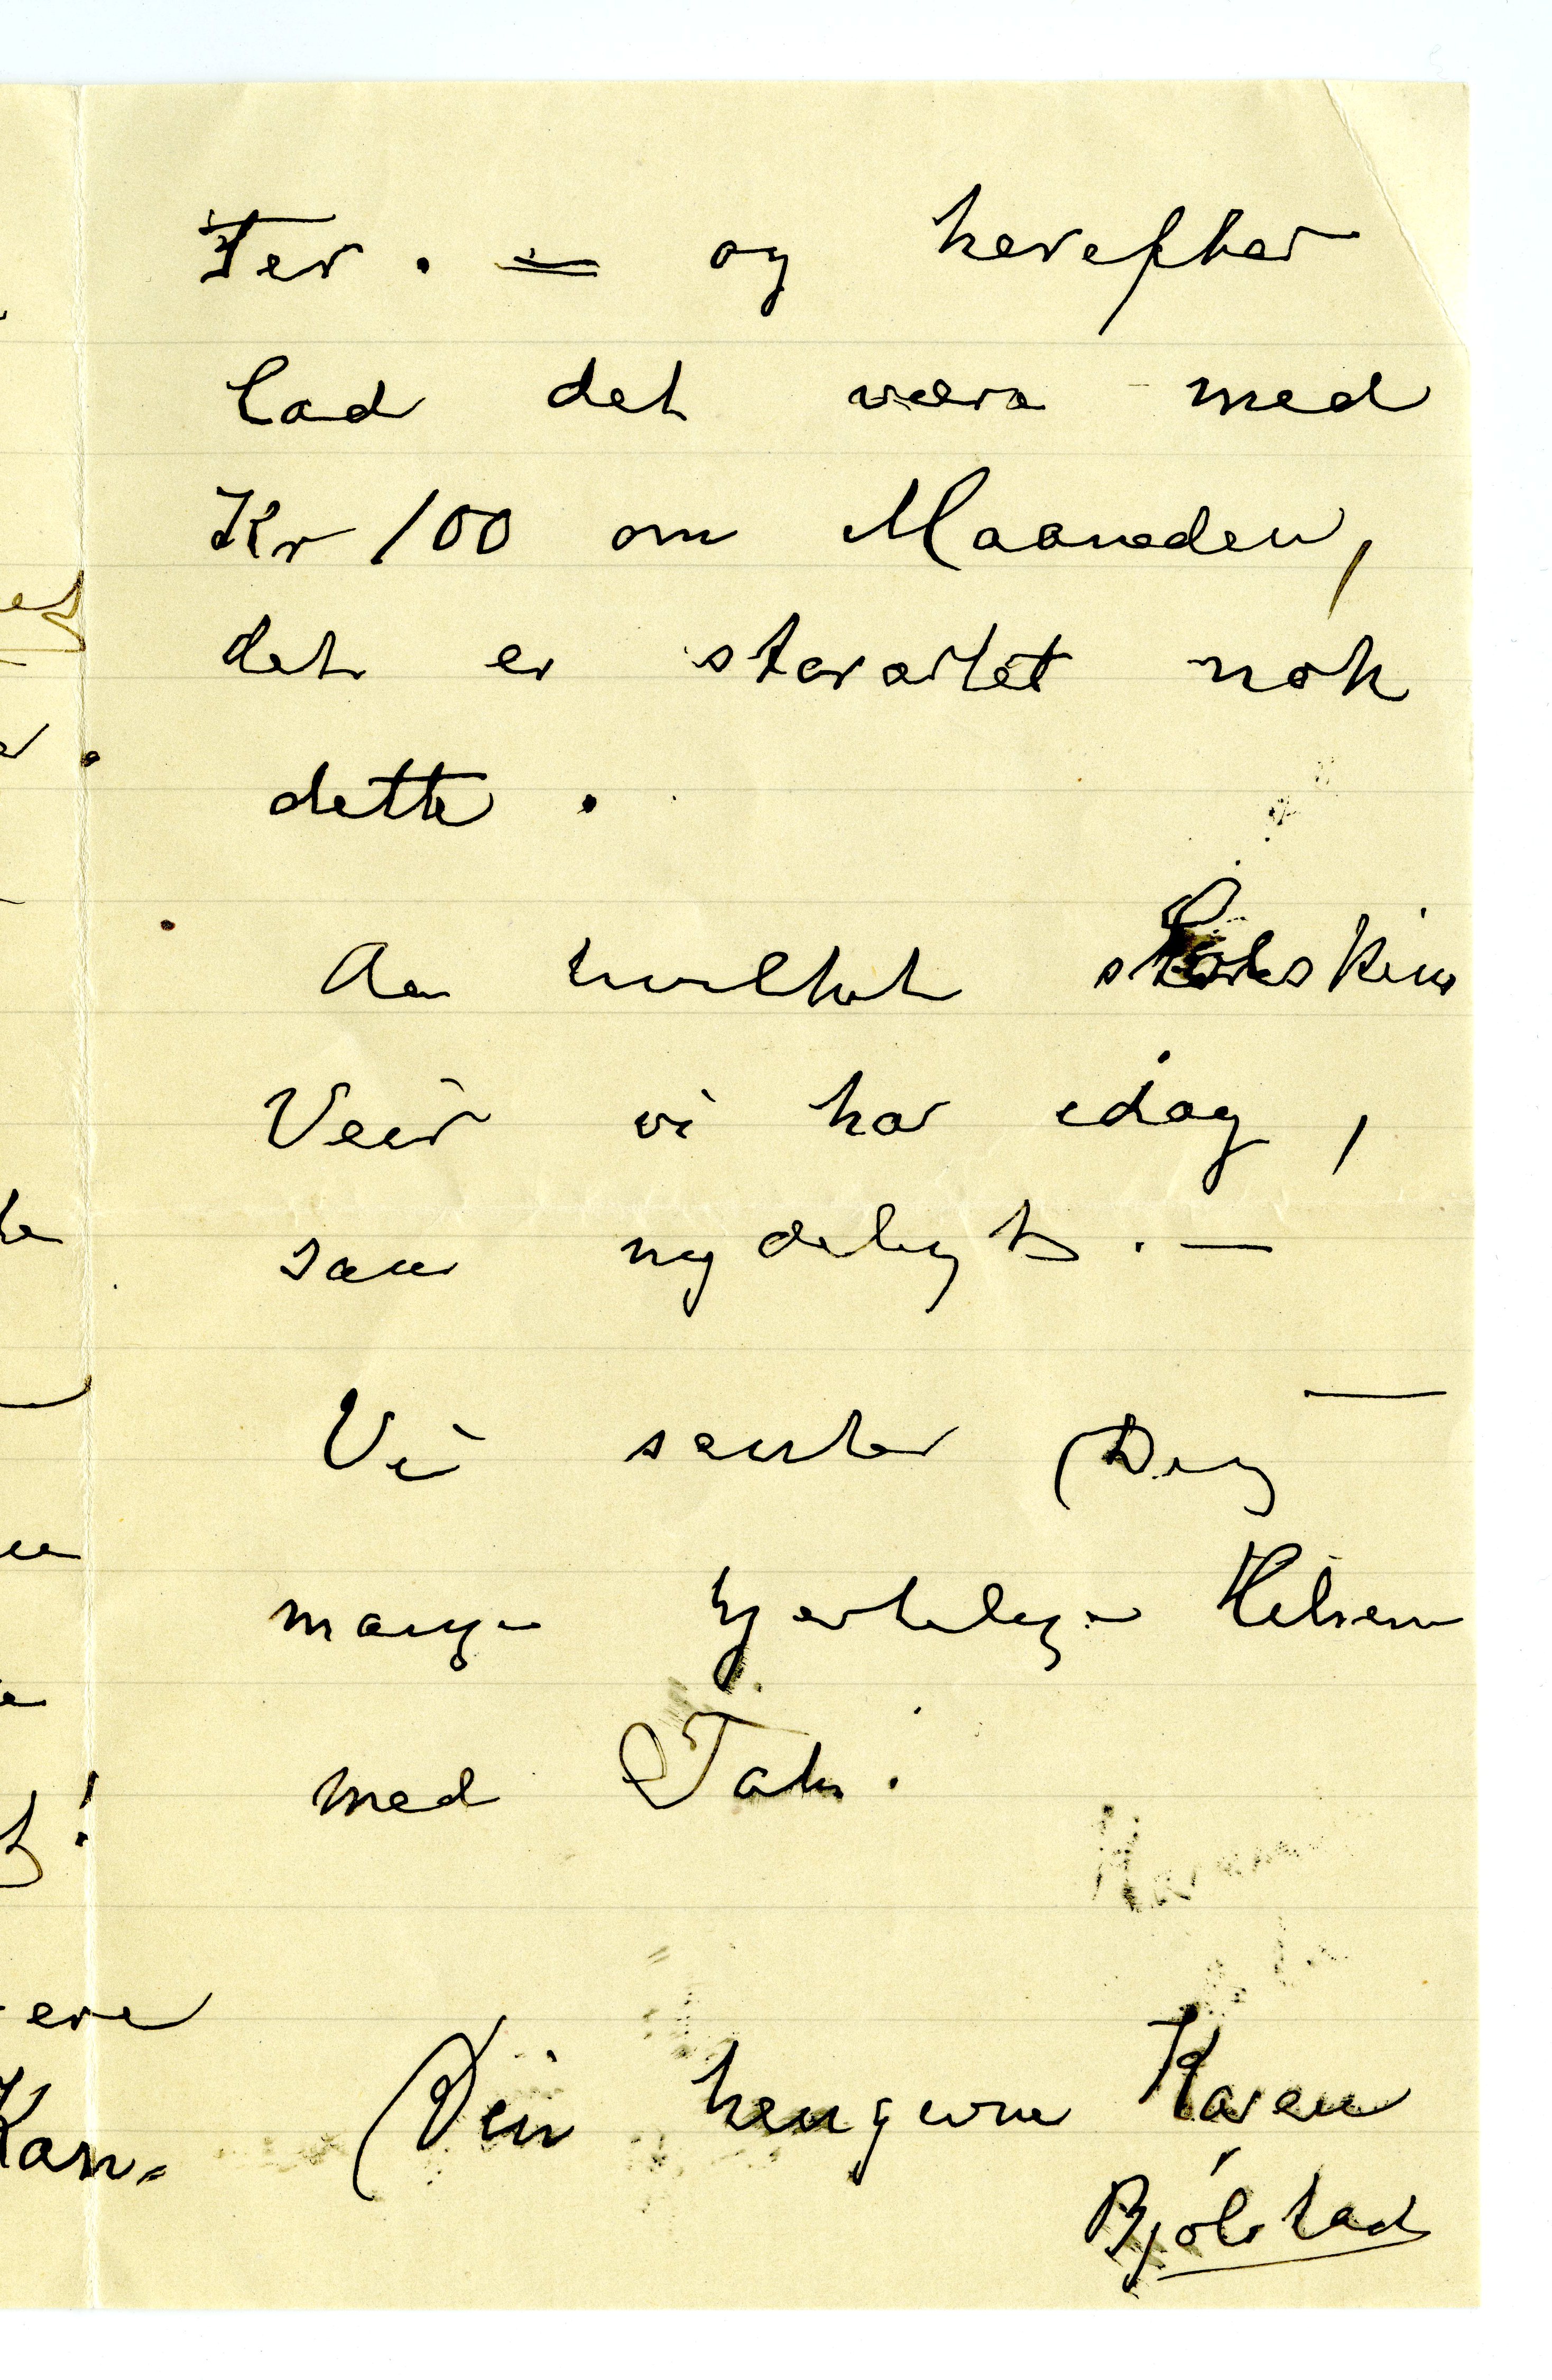 Ter. = og herefter
lad det være med
Kr 100 om Maaneden,
det er storartet nok
dette.
Aa hvilket Solskins
Veir vi har idag,
saa nydeligt. —
Vi sender Dig —
mange hjertelige Hilsener
med Tak.
ere
Din hengivne Karen
Kan.
Bjølstad